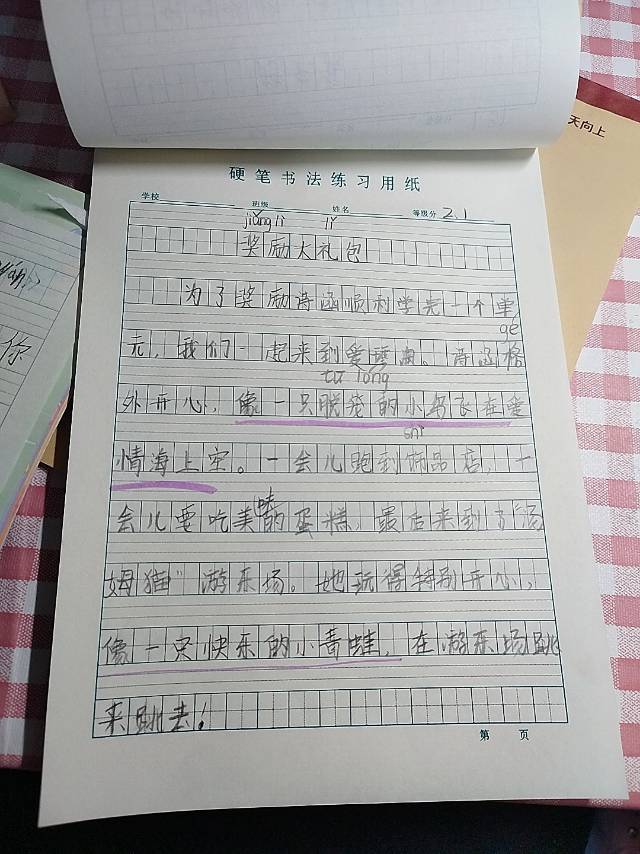 天向上
硬笔书法练习用纸
学校 班级 姓名 等级分 2.1
jiǎng lì lǐ
奖励大礼包
为了奖励诗函顺利学完一个单
gé
元，我们一起来到爱琴海。诗函格
tuō lóng
外开心，像一只脱笼的小鸟飞在爱
shì
情海上空。一会儿跑到饰品店，一
会儿要吃美味的蛋糕，最后来到了"汤
姆猫"游乐场。她玩得特别开心，
像一只快乐的小青蛙，在游乐场跳
来跳去！
第 页
你